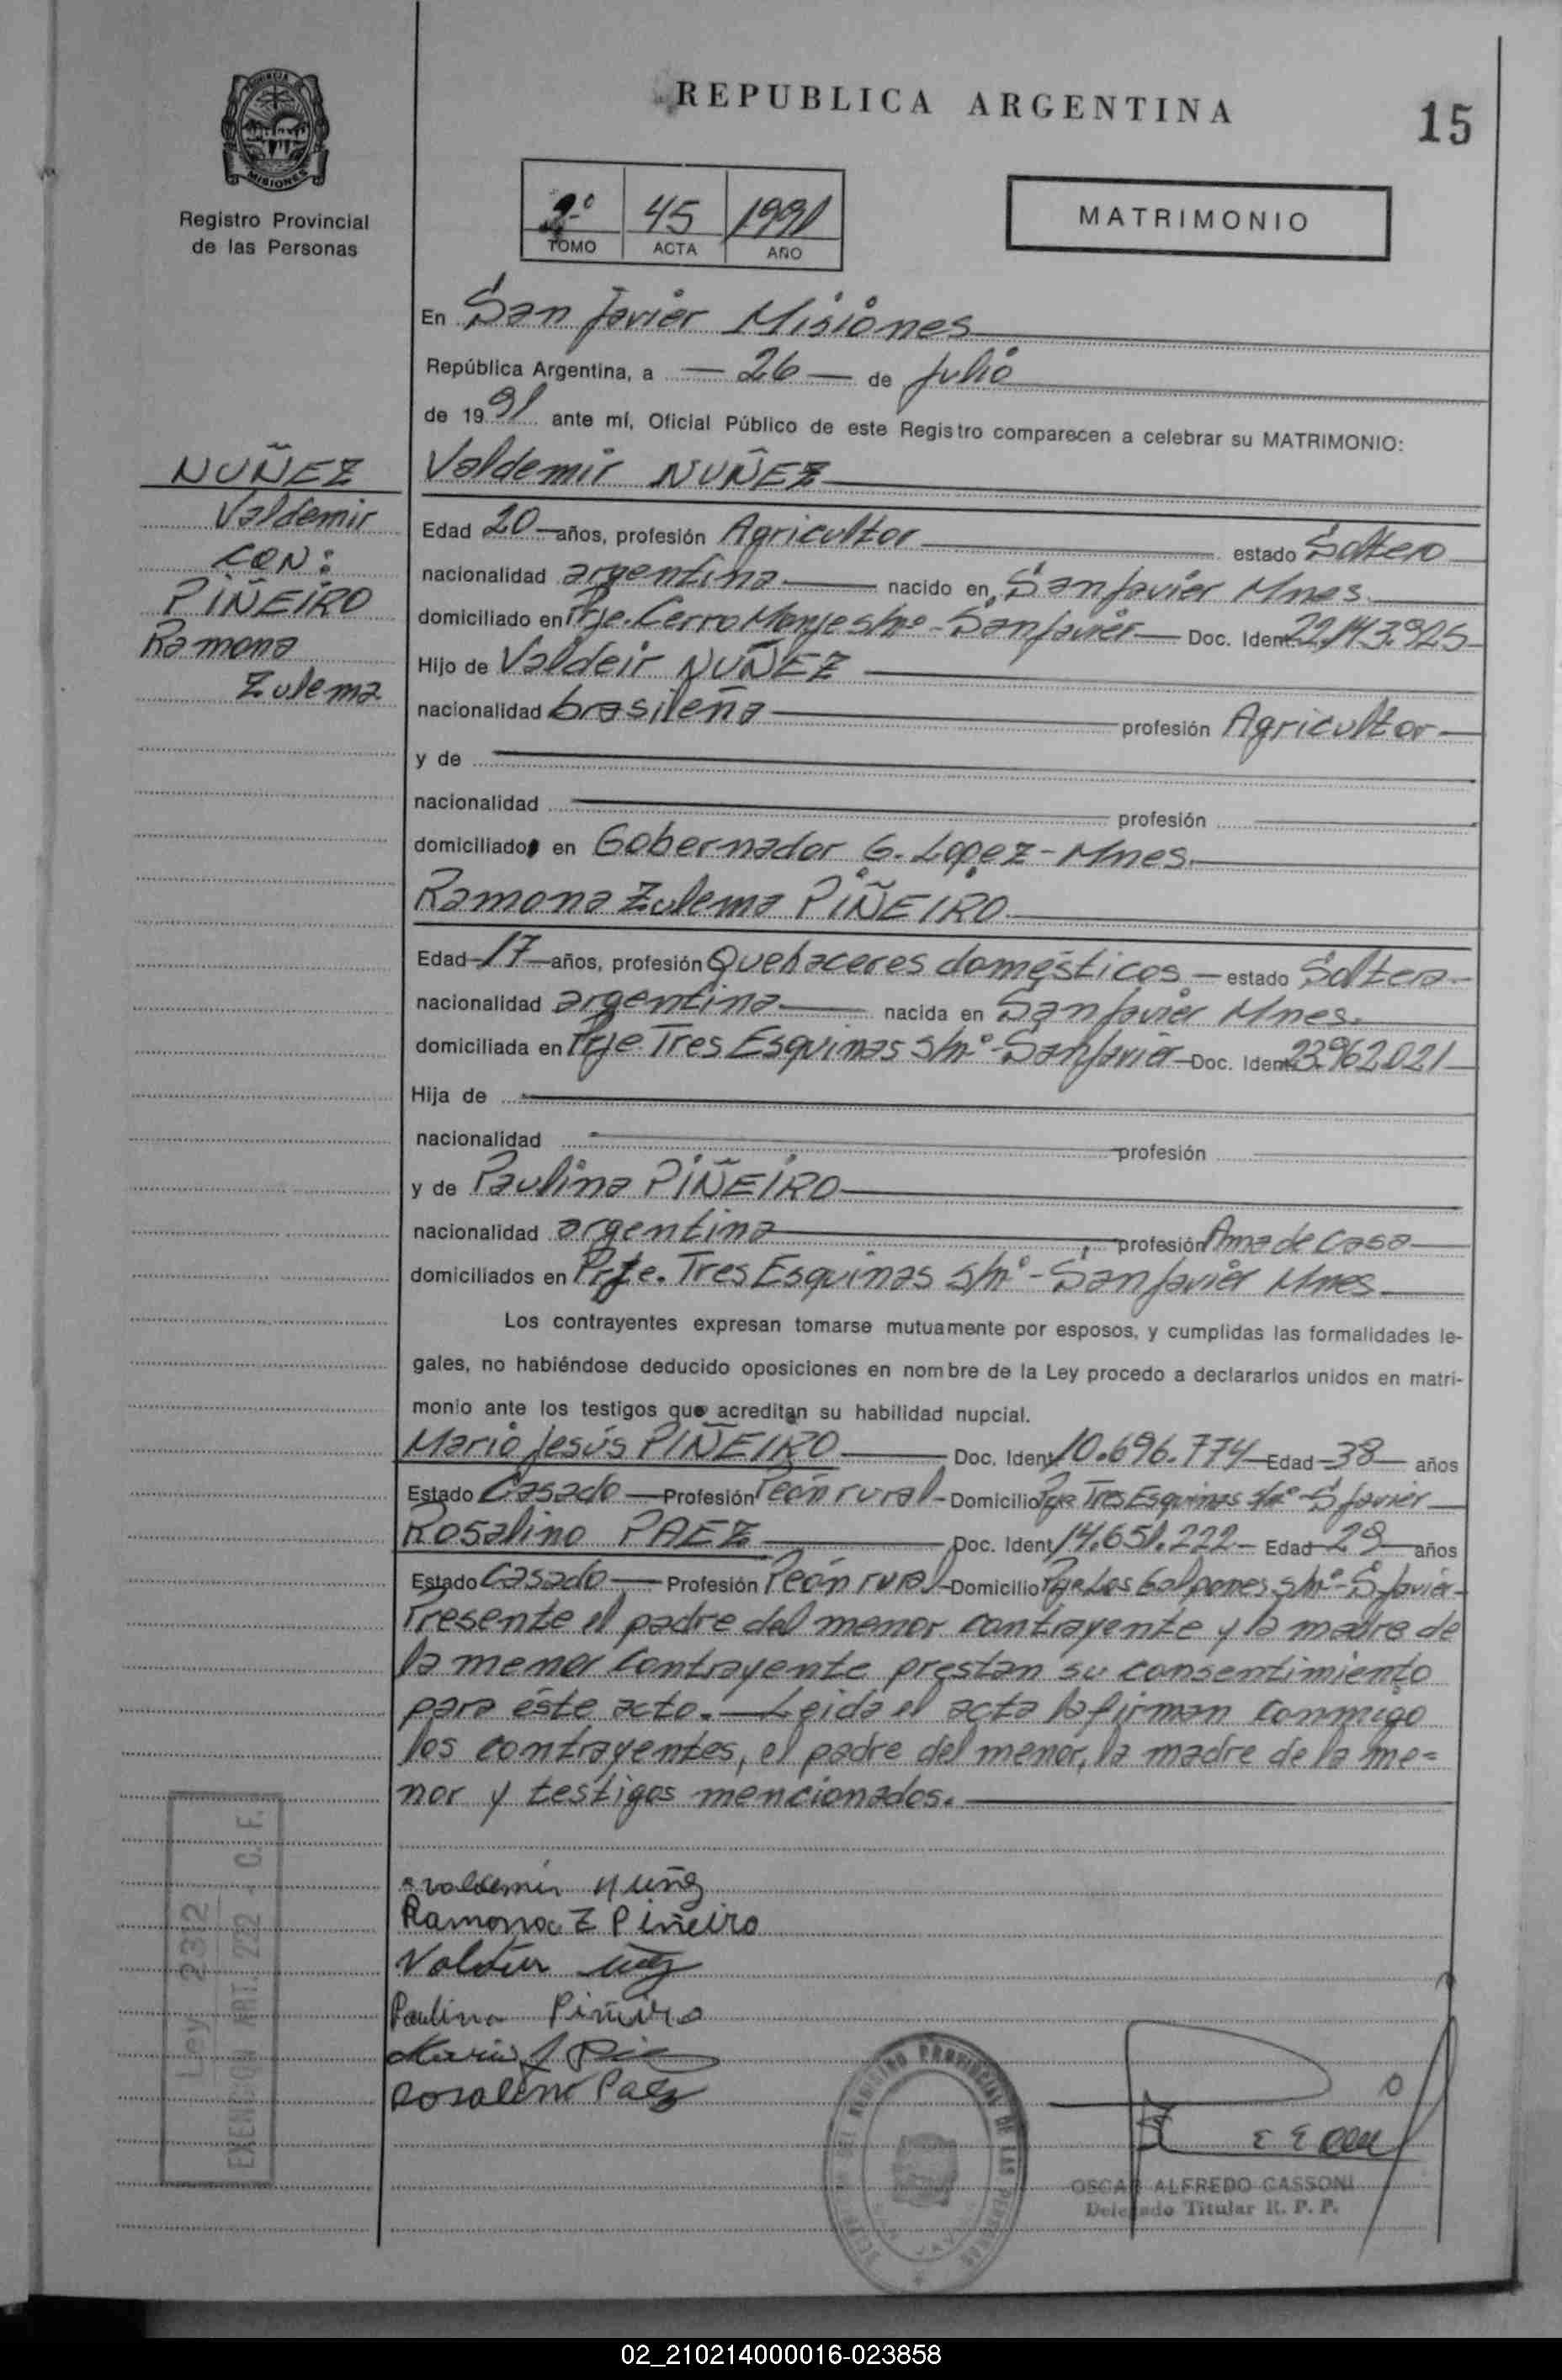 REPUBLICA ARGENTINA
15
MISIONES
Registro Provincial
de las Personas
2º 45 1991
TOMO ACTA AÑO
MATRIMONIO
En San Javier Misiones
República Argentina, a — 26 — de Julio
de 1991 ante mí, Oficial Público de este Registro comparecen a celebrar su MATRIMONIO:
NUÑEZ
Valdemir
CON:
PIÑEIRO
Ramona
Zulema
Valdemir NUÑEZ
Edad 20 años, profesión Agricultor estado Soltero
nacionalidad argentina nacido en San Javier Mnes.
domiciliado en Pje. Cerro Monje s/nº - San Javier — Doc. Ident. 22.143.925
Hijo de Valdeir NUÑEZ
nacionalidad brasileña profesión Agricultor
y de
nacionalidad profesión
domiciliados en Gobernador G. Lopez - Mnes.
Ramona Zulema PIÑEIRO
Edad 17 años, profesión Quehaceres domésticos — estado Soltera
nacionalidad argentina nacida en San Javier Mnes.
domiciliada en Pje Tres Esquinas s/nº - San Javier Doc. Ident. 23.962.021
Hija de
nacionalidad profesión
y de Paulina PIÑEIRO
nacionalidad argentina profesión Ama de Casa
domiciliados en Pje. Tres Esquinas s/nº - San Javier Mnes
Los contrayentes expresan tomarse mutuamente por esposos, y cumplidas las formalidades le-
gales, no habiéndose deducido oposiciones en nombre de la Ley procedo a declararlos unidos en matri-
monio ante los testigos que acreditan su habilidad nupcial.
Mario Jesús PIÑEIRO Doc. Ident 10.696.774 Edad 38 años
Estado Casado Profesión Peón rural - Domicilio Pje Tres Esquinas s/nº - S. Javier
Rosalino PAEZ Doc. Ident 14.651.222 - Edad 29 años
Estado Casado Profesión Peón rural - Domicilio Pje Los Galpones s/nº - S. Javier -
Presente el padre del menor contrayente y la madre de
la menor contrayente prestan su consentimiento
para éste acto. — Leida el acta la firman conmigo
los contrayentes, el padre del menor, la madre de la me=
nor y testigos mencionados.
Ley 2312
EXENCION ART. 222 - C. F.
Valdemir Nuñez
Ramona Z Piñeiro
Paulina Piñeiro
Rosalino Paez
REGISTRO PROVINCIAL DE LAS PERSONAS
OSCAR ALFREDO CASSONI
Delegado Titular R. P. P.
02_210214000016-023858